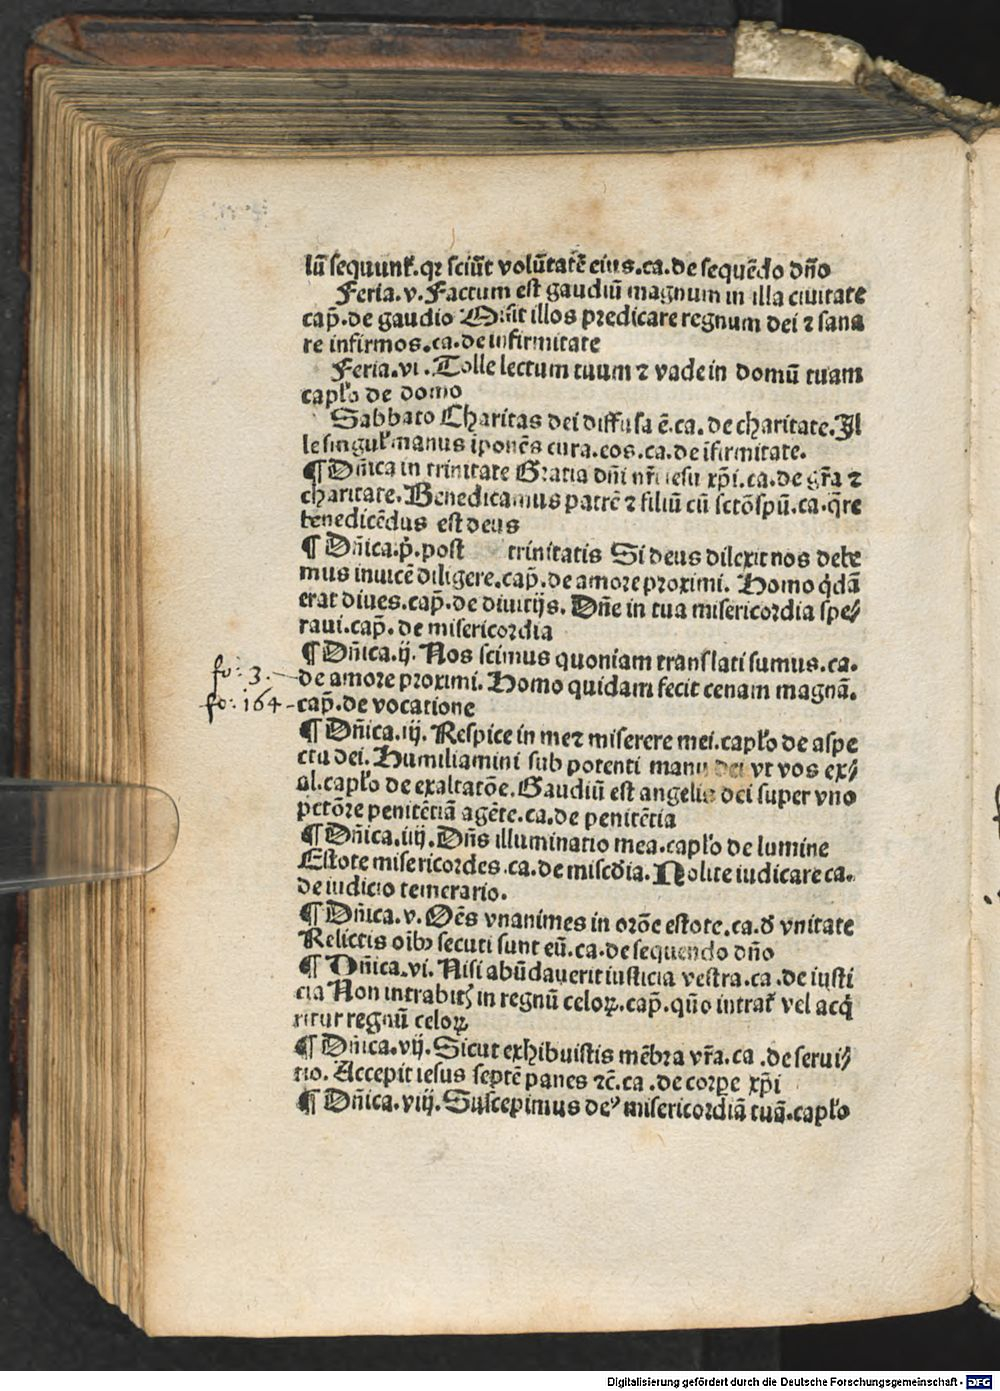 lū sequunt̃.qꝛ sciūt volūtatē eius.ca.de sequēdo dño
Feria.v.Factum est gaudiū magnum in illa ciuitate
cap̃.de gaudio Misit illos predicare regnum dei ⁊ sana
re infirmos.ca.de infirmitate
Feria.vi.Tolle lectum tuum ⁊ vade in domū tuam
capl̃o de domo
Sabbato Charitas dei diffusa ē.ca.de charitate.Il
le singul̃ manus iponēs cura.eos.ca.de ifirmitate.
¶ Dñica in trinitate Gratia dñi nr̃i iesu xp̃i.ca.de gr̃a ⁊
charitate.Benedicamus patrē ⁊ filiū cū sctō spū.ca.q̃re
benedicēdus est deus
¶ Dñica.p̃.post trinitatis Si deus dilexit nos debe
mus inuicē diligere.cap̃.de amore proximi. Homo q̇dā
erat diues.cap̃.de diuitijs. Dñe in tua misericordia spe⸗
raui.cap̃.de misericordia
¶ Dñica.ij. Nos scimus quoniam translati sumus.ca.
fo: 3. de amore proximi. Homo quidam fecit cenam magnā.
fo: 164 cap̃.de vocatione
¶ Dñica.iij. Respice in me ⁊ miserere mei.capl̃o de aspe
ctu dei. Humiliamini sub potenti manu dei vt vos ex⸗
al.capl̃o de exaltatōe.Gaudiū est angelis dei super vno
pctōre penitētiā agēte.ca.de penitētia
¶ Dñica.iiij.Dñs illuminatio mea.capl̃o de lumine
Estote misericordes.ca.de miscd̃ia.Nolite iudicare ca.
de iudicio temerario.
¶ Dñica.v.Oēs vnanimes in orōe estote.ca.d̃ vnitate
Relictis oībꝰ secuti sunt eū.ca.de sequendo dño
¶ Dñica.vi.Nisi abūdauerit iusticia vestra.ca.de iusti
cia Non intrabitꝭ in regnū celoꝝ.cap̃.quō intrat̃ vel acq̇
ritur regnū celoꝝ
¶ Dñica.vij.Sicut exhibuistis mēbra vr̃a.ca.de serui⸗
tio. Accepit iesus septē panes ⁊c̃.ca.de corpe xp̃i
¶ Dñica.viij.Suscepimus deꝰ misericordiā tuā.capl̃o
Digitalisierung gefördert durch die Deutsche Forschungsgemeinschaft - DFG